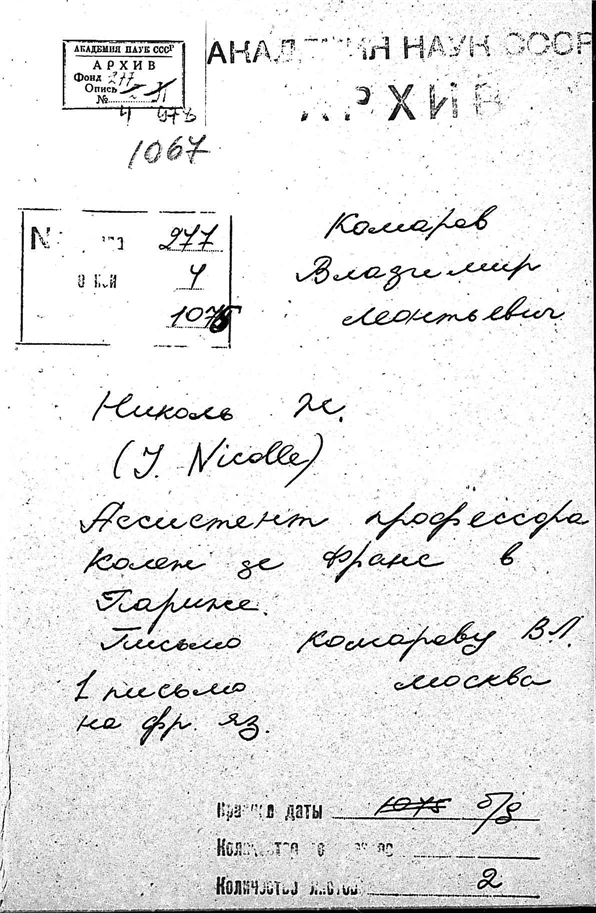 АКАДЕМИЯ НАУК СССР
АРХИВ
Фонд 277
Опись
№
4 1078
АКАДЕМИЯ НАУК СССР
АРХИВ
1067
277
4
1075
Комаров
Владимир
Леонтьевич
Николь Ж.
(J. Nicolle)
Ассистент профессора
Колеж де Франс в
Париже.
Письмо Комарову В.Л.
1 письмо Москва
на фр. яз.
Крайние даты 1075 б/д
Количество
Количество листов 2